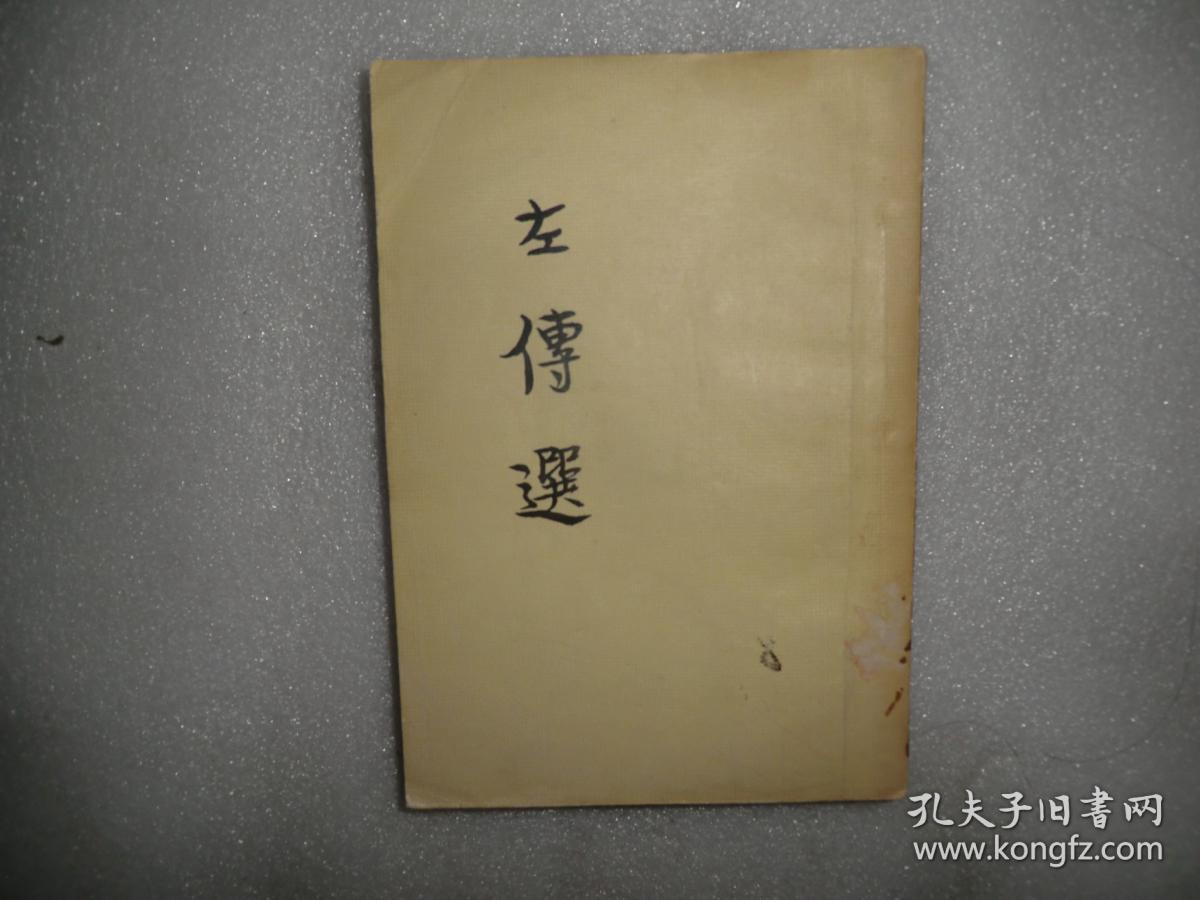 左傳選
孔夫子旧書网
www.kongfz.com